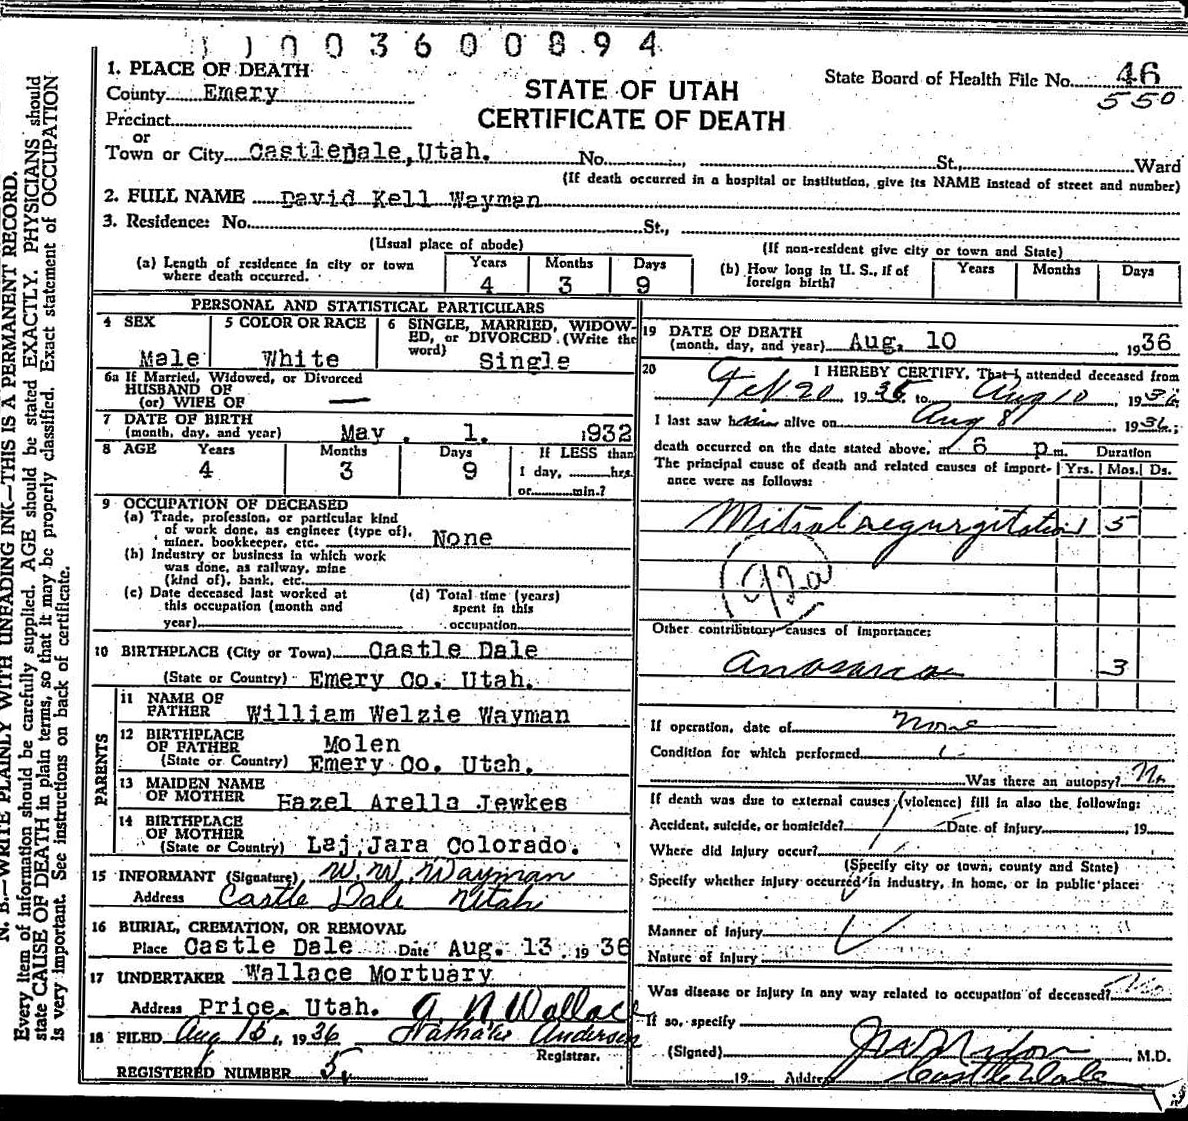 1 1 0 0 3 6 0 0 8 9 4
1. PLACE OF DEATH
County Emery
STATE OF UTAH
CERTIFICATE OF DEATH
State Board of Health File No. 46
550
Precinct
or
Town or City CastleDale,Utah. No. St., Ward
(If death occurred in a hospital or institution, give its NAME instead of street and number)
2. FULL NAME David Kell Wayman
3. Residence: No. St.,
(Usual place of abode) (If non-resident give city or town and State)
(a) Length of residence in city or town where death occurred. Years 4 Months 3 Days 9
(b) How long in U. S., if of foreign birth? Years Months Days
PERSONAL AND STATISTICAL PARTICULARS
4 SEX Male
5 COLOR OR RACE White
6 SINGLE, MARRIED, WIDOWED, or DIVORCED (Write the word) Single
6a If Married, Widowed, or Divorced
HUSBAND OF
(or) WIFE OF —
7 DATE OF BIRTH
(month, day, and year) May 1. 1932
8 AGE Years 4 Months 3 Days 9 If LESS than 1 day, hrs. or min.?
9 OCCUPATION OF DECEASED
(a) Trade, profession, or particular kind of work done, as engineer (type of), miner, bookkeeper, etc. None
(b) Industry or business in which work was done, as railway, mine (kind of), bank, etc.
(c) Date deceased last worked at this occupation (month and year)
(d) Total time (years) spent in this occupation
10 BIRTHPLACE (City or Town) Castle Dale
(State or Country) Emery Co. Utah.
PARENTS
11 NAME OF FATHER William Welzie Wayman
12 BIRTHPLACE OF FATHER Molen
(State or Country) Emery Co. Utah.
13 MAIDEN NAME OF MOTHER Hazel Arella Jewkes
14 BIRTHPLACE OF MOTHER
(State or Country) Laj Jara Colorado.
15 INFORMANT (Signature) W. W. Wayman
Address Castle Dale Utah
16 BURIAL, CREMATION, OR REMOVAL
Place Castle Dale Date Aug. 13 1936
17 UNDERTAKER Wallace Mortuary
Address Price, Utah. A. N. Wallace
18 FILED Aug 15, 1936 Nathalie Anderson
Registrar.
REGISTERED NUMBER 5,
19 DATE OF DEATH
(month, day, and year) Aug. 10 1936
20 I HEREBY CERTIFY, That I attended deceased from
Feb 20 1935 to Aug 10, 1936
I last saw him alive on Aug 8 1936;
death occurred on the date stated above, at 6 p.m. Duration
The principal cause of death and related causes of importance were as follows: Yrs. Mos. Ds.
Mitral regurgitation 1 5
92a
Other contributory causes of importance:
anasarca 3
If operation, date of None
Condition for which performed
Was there an autopsy? No
If death was due to external causes (violence) fill in also the following:
Accident, suicide, or homicide? Date of injury 19
Where did injury occur?
(Specify city or town, county and State)
Specify whether injury occurred in industry, in home, or in public place:
Manner of injury
Nature of injury
Was disease or injury in any way related to occupation of deceased? No
If so, specify
(Signed) M.D.
19 Address Castle Dale
N. B.—WRITE PLAINLY WITH UNFADING INK—THIS IS A PERMANENT RECORD.
Every item of information should be carefully supplied. AGE should be stated EXACTLY. PHYSICIANS should
state CAUSE OF DEATH in plain terms, so that it may be properly classified. Exact statement of OCCUPATION
is very important. See instructions on back of certificate.